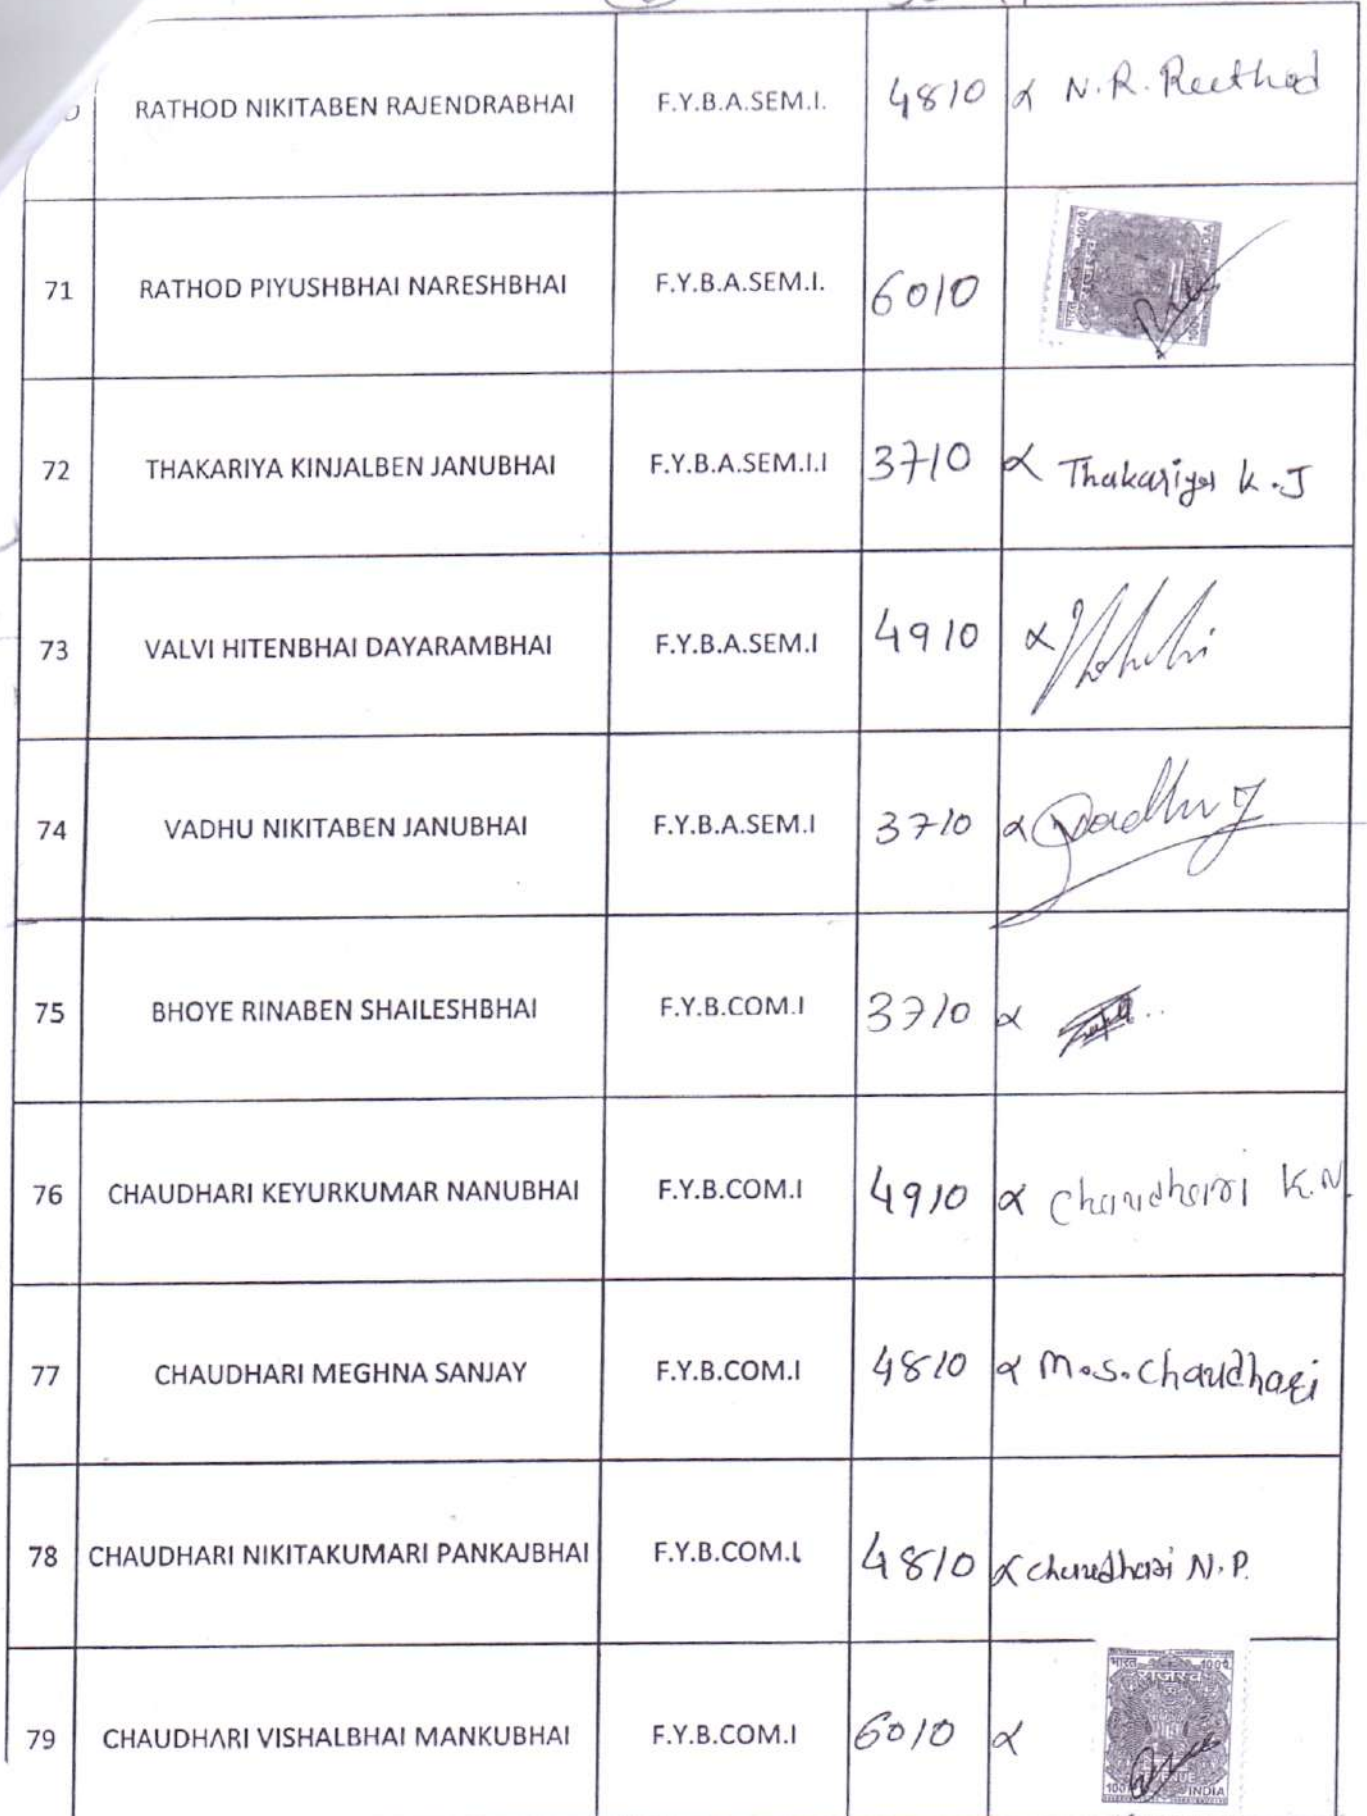 RATHOD NIKITABEN RAJENDRABHAI F.Y.B.A.SEM.I. 4810 N.R. Reethod
71 RATHOD PIYUSHBHAI NARESHBHAI F.Y.B.A.SEM.I. 6010
72 THAKARIYA KINJALBEN JANUBHAI F.Y.B.A.SEM.I.I 3710 Thakariya K.J
73 VALVI HITENBHAI DAYARAMBHAI F.Y.B.A.SEM.I 4910
74 VADHU NIKITABEN JANUBHAI F.Y.B.A.SEM.I 3710
75 BHOYE RINABEN SHAILESHBHAI F.Y.B.COM.I 3710
76 CHAUDHARI KEYURKUMAR NANUBHAI F.Y.B.COM.I 4910 Chaudhari K.N.
77 CHAUDHARI MEGHNA SANJAY F.Y.B.COM.I 4810 M.S.Chaudhari
78 CHAUDHARI NIKITAKUMARI PANKAJBHAI F.Y.B.COM.I 4810 Chaudhari N.P.
भारत
79 CHAUDHARI VISHALBHAI MANKUBHAI F.Y.B.COM.I 6010
INDIA